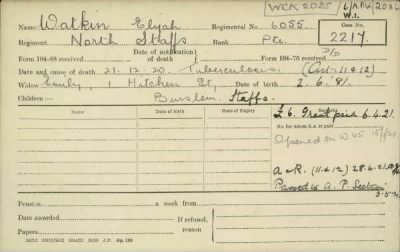 WCA 2025
W.I.
Name Watkin Elijah Regimental No 6055. Case No.
Regiment North Staffs Rank Pte. 2217.
Date of notification
Form 104-88 received on Form 104-76 received on
Date and cause of death 21.12.20. Tuberculosis.
Widow Emily, 1 Hitchen St, Date of birth 2.6.81.
Children: Burslem. Staffs.
Name Date of Birth Date of Expiry Remarks
£6. Grant paid 6.4.21.
A & R. (11 & 12) 28.4.21.
Passed to A. P. Section
Pension a week from
Date awarded If refused, reason
Date commenced